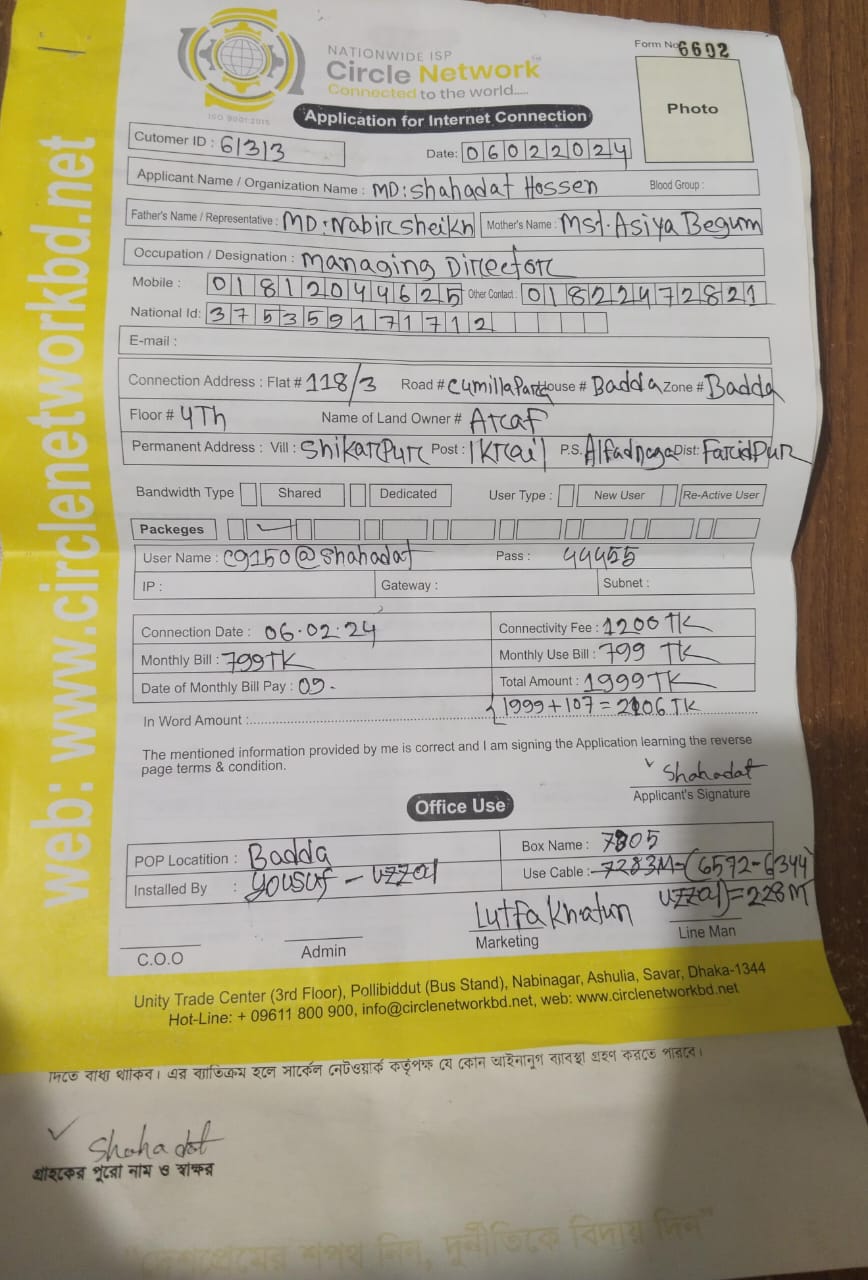 web: www.circlenetworkbd.net
NATIONWIDE ISP
Circle Network™
Connected to the world.....
ISO 9001:2015
Form No 6602
Photo
Application for Internet Connection
Cutomer ID : 61313
Date: 06022024
Applicant Name / Organization Name : MD: Shahadat Hossen Blood Group :
Father's Name / Representative : MD: Nabir Sheikh Mother's Name : Mst. Asiya Begum
Occupation / Designation : Managing Director
Mobile : 01812044625 Other Contact : 01822472821
National Id: 375359171712
E-mail :
Connection Address : Flat # 118/3 Road # Cumilla Para House # Badda Zone # Badda
Floor # 4Th Name of Land Owner # Araf
Permanent Address : Vill : Shikarpur Post : Ikrail P.S. Alfadnaga Dist: Faridpur
Bandwidth Type Shared Dedicated User Type : New User Re-Active User
Packeges
User Name : cg150@shahadat Pass : 44455
IP : Gateway : Subnet :
Connection Date : 06.02.24 Connectivity Fee : 1200 TK
Monthly Bill : 799TK Monthly Use Bill : 799 TK
Date of Monthly Bill Pay : 09. Total Amount : 1999TK
In Word Amount : 1999+107=2106TK
The mentioned information provided by me is correct and I am signing the Application learning the reverse
page terms & condition.
Shahadat
Applicant's Signature
Office Use
POP Locatition : Badda Box Name : 7805
Installed By : Yousuf - Uzzal Use Cable : 7283M-(6572-6344
Uzzal)=228M
Lutfa Khatun
C.O.O Admin Marketing Line Man
Unity Trade Center (3rd Floor), Pollibiddut (Bus Stand), Nabinagar, Ashulia, Savar, Dhaka-1344
Hot-Line: + 09611 800 900, info@circlenetworkbd.net, web: www.circlenetworkbd.net
দিতে বাধ্য থাকিব। এর ব্যতিক্রম হলে সার্কেল নেটওয়ার্ক কর্তৃপক্ষ যে কোন আইনানুগ ব্যবস্থা গ্রহণ করতে পারবে।
Shahadat
গ্রাহকের পুরো নাম ও স্বাক্ষর
"দেশপ্রেমের শপথ নিন, দুর্নীতিকে বিদায় দিন"